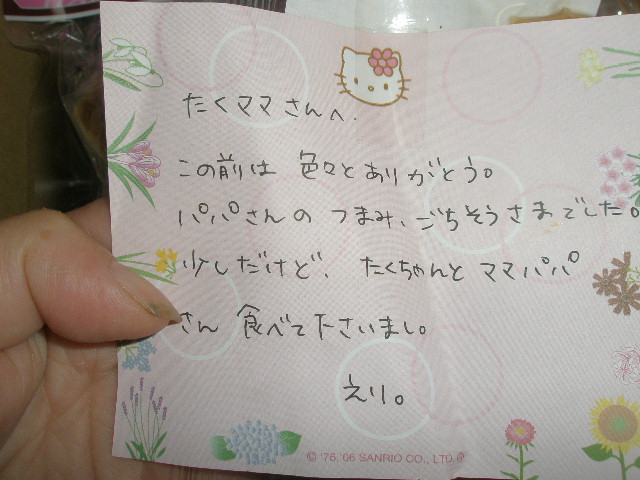 たくママさんへ.
この前は 色々とありがとう。
パパさんの つまみ、ごちそうさまでした。
少しだけど、たくちゃんと ママパパ
さん 食べて下さいまし。
えり。
© '76, '06 SANRIO CO., LTD.®